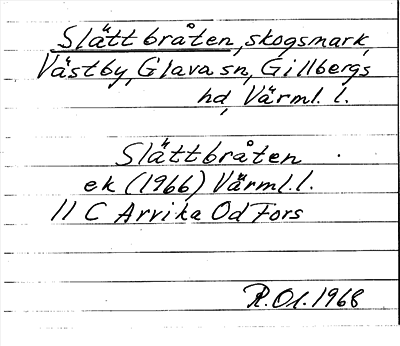 Slättbråten, skogsmark,
Västby, Glava sn, Gillbergs
hd, Värml. l.
Slättbråten
ek (1966) Värml. l.
11 C Arvika Od Fors
R.Ol. 1968